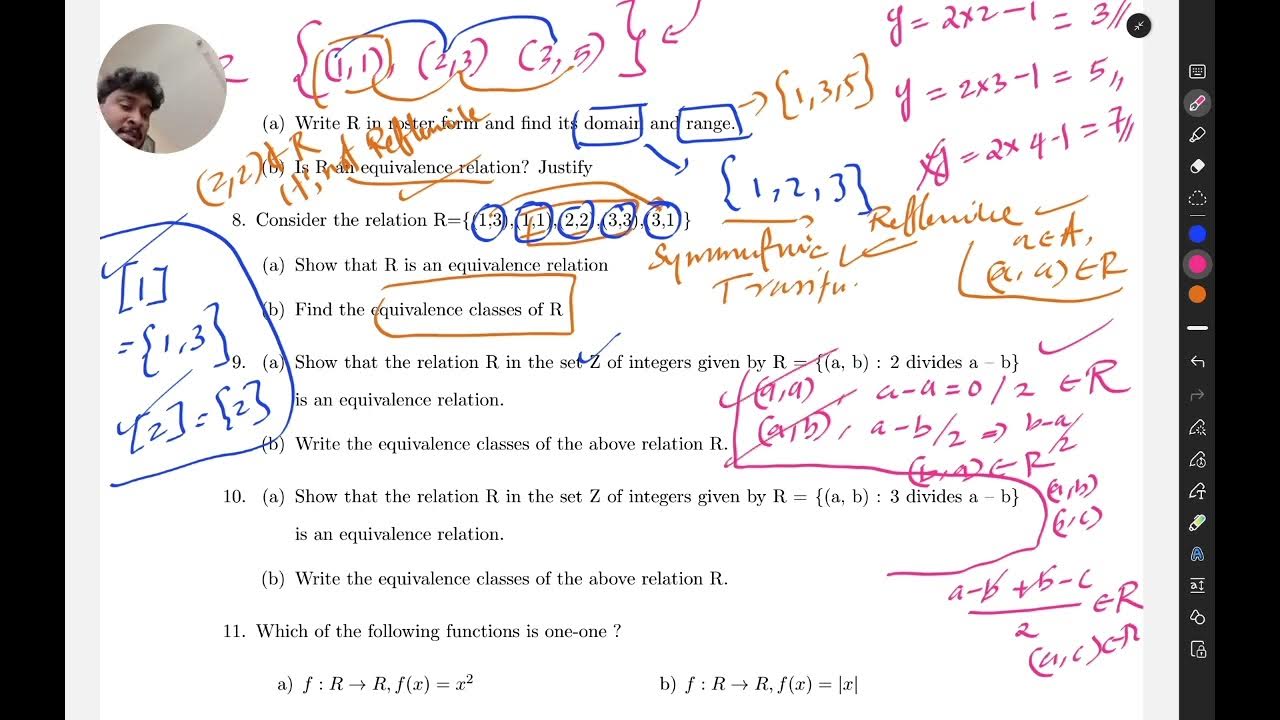 R {(1,1), (2,3) (3,5)}
y = 2x2-1 = 3//
y = 2x3-1 = 5,,
y = 2x4-1 = 7//
(a) Write R in roster form and find its domain and range. → {1,3,5}
(2,2)∉R
It's not Reflexive
(b) Is R an equivalence relation? Justify
{1,2,3}
8. Consider the relation R={(1,3),(1,1),(2,2),(3,3),(3,1)}
Reflexive
Symmetric
a∈A,
(a,a)∈R
(a) Show that R is an equivalence relation
[1]
={1,3}
[2]={2}
(b) Find the equivalence classes of R
9. (a) Show that the relation R in the set Z of integers given by R = {(a, b) : 2 divides a – b}
is an equivalence relation.
(a,a), a-a=0/2 ∈R
(a,b), a-b/2 ⇒ b-a/2
(b,a)∈R
(b) Write the equivalence classes of the above relation R.
10. (a) Show that the relation R in the set Z of integers given by R = {(a, b) : 3 divides a – b}
is an equivalence relation.
(a,b)
(b,c)
a-b+b-c
2
∈R
(a,c)∈R
(b) Write the equivalence classes of the above relation R.
11. Which of the following functions is one-one ?
a) f : R → R, f(x) = x²
b) f : R → R, f(x) = |x|